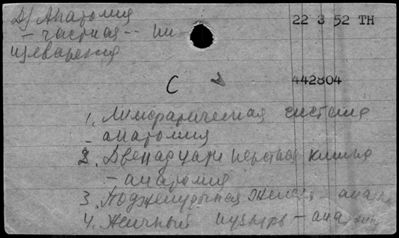 D) Анатомия
22 3 52 TH
- частная -- пи
щеварения
С
442804
1. Лимфатическая система
- анатомия
2. Двенадцатиперстная кишка
- анатомия
3. Поджелудочная железа - анатомия
4. Желчный пузырь - анатомия